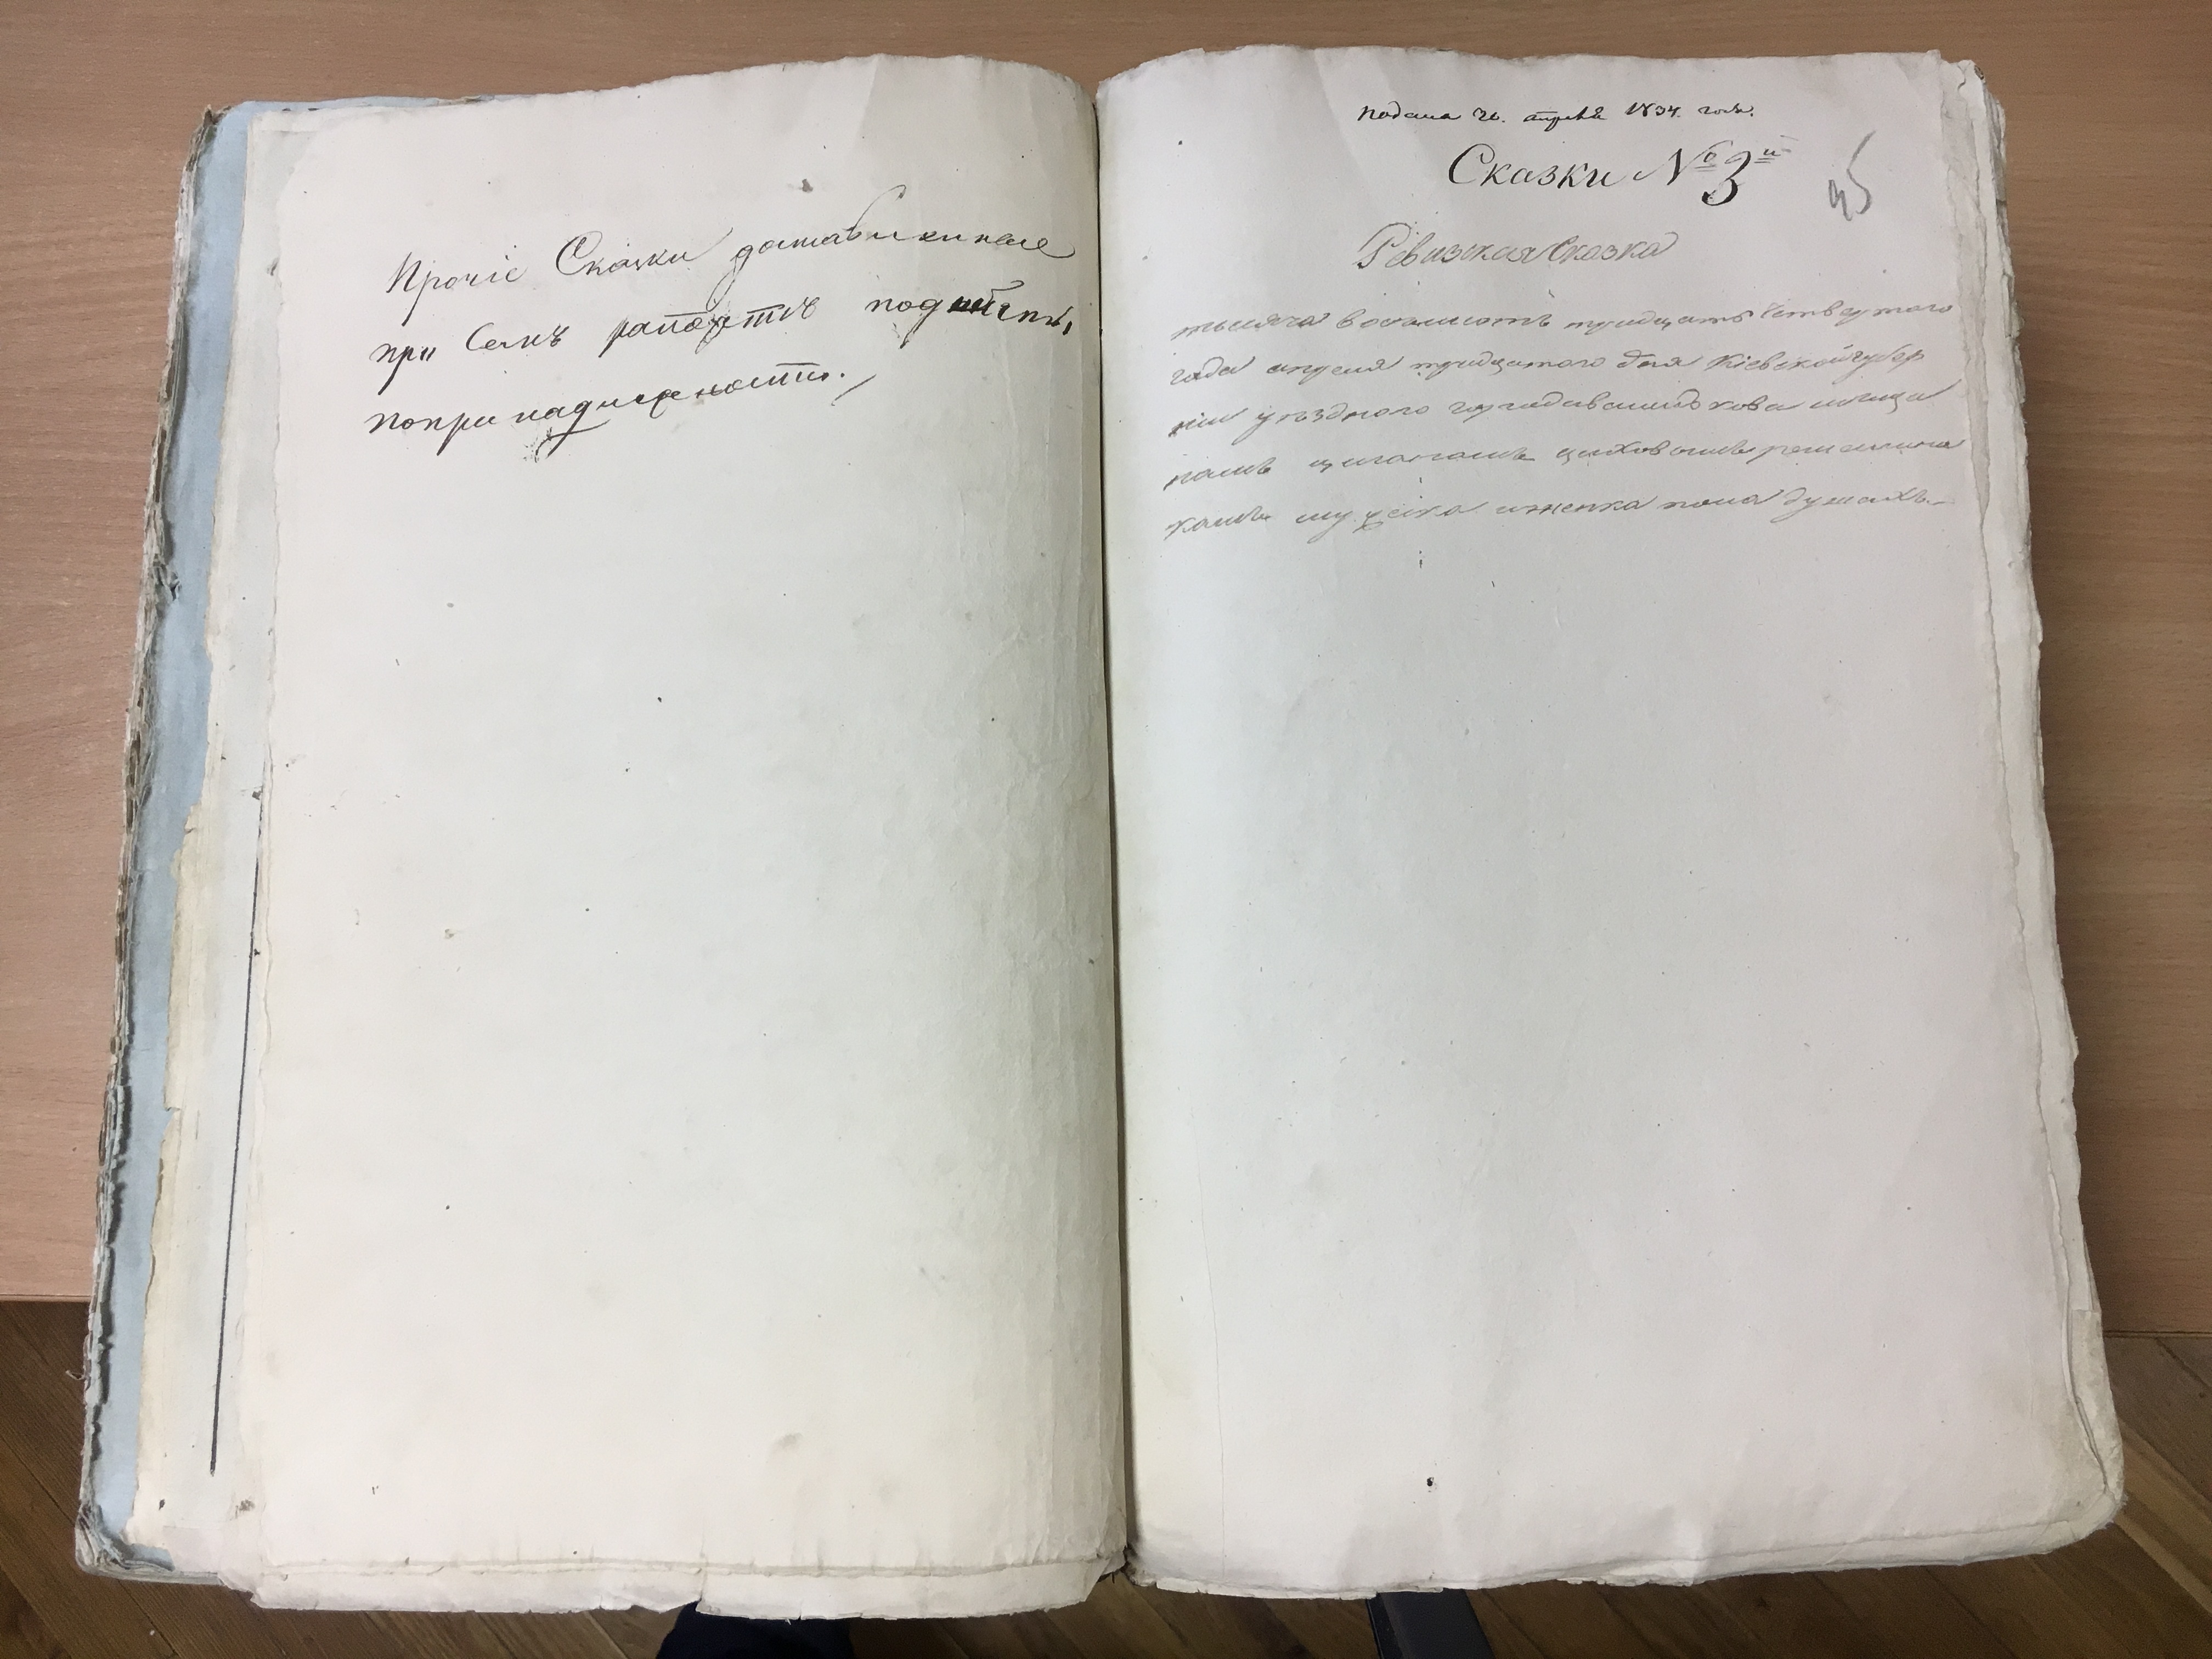 Прочіе Сказки доставленные
при Семъ рапортѣ
попринадлежности.
подана 30. апреля 1834. года.
Сказки № 3й
45
Ревизская Сказка
тысяча восемьсотъ тридцать четвертого
года апреля тридцатого дня Кіевской губер
ніи уѣздного города
цеховымъ ремеслен
мужеска и женска пола душахъ